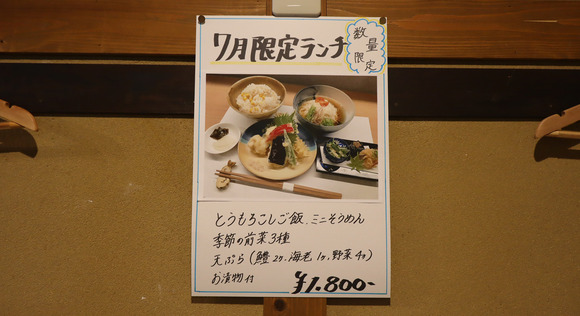 7月限定ランチ
数量
限定
とうもろこしご飯、ミニそうめん
季節の前菜3種
天ぷら(鱧2ヶ,海老1ヶ,野菜4ヶ)
お漬物付
¥1.800-